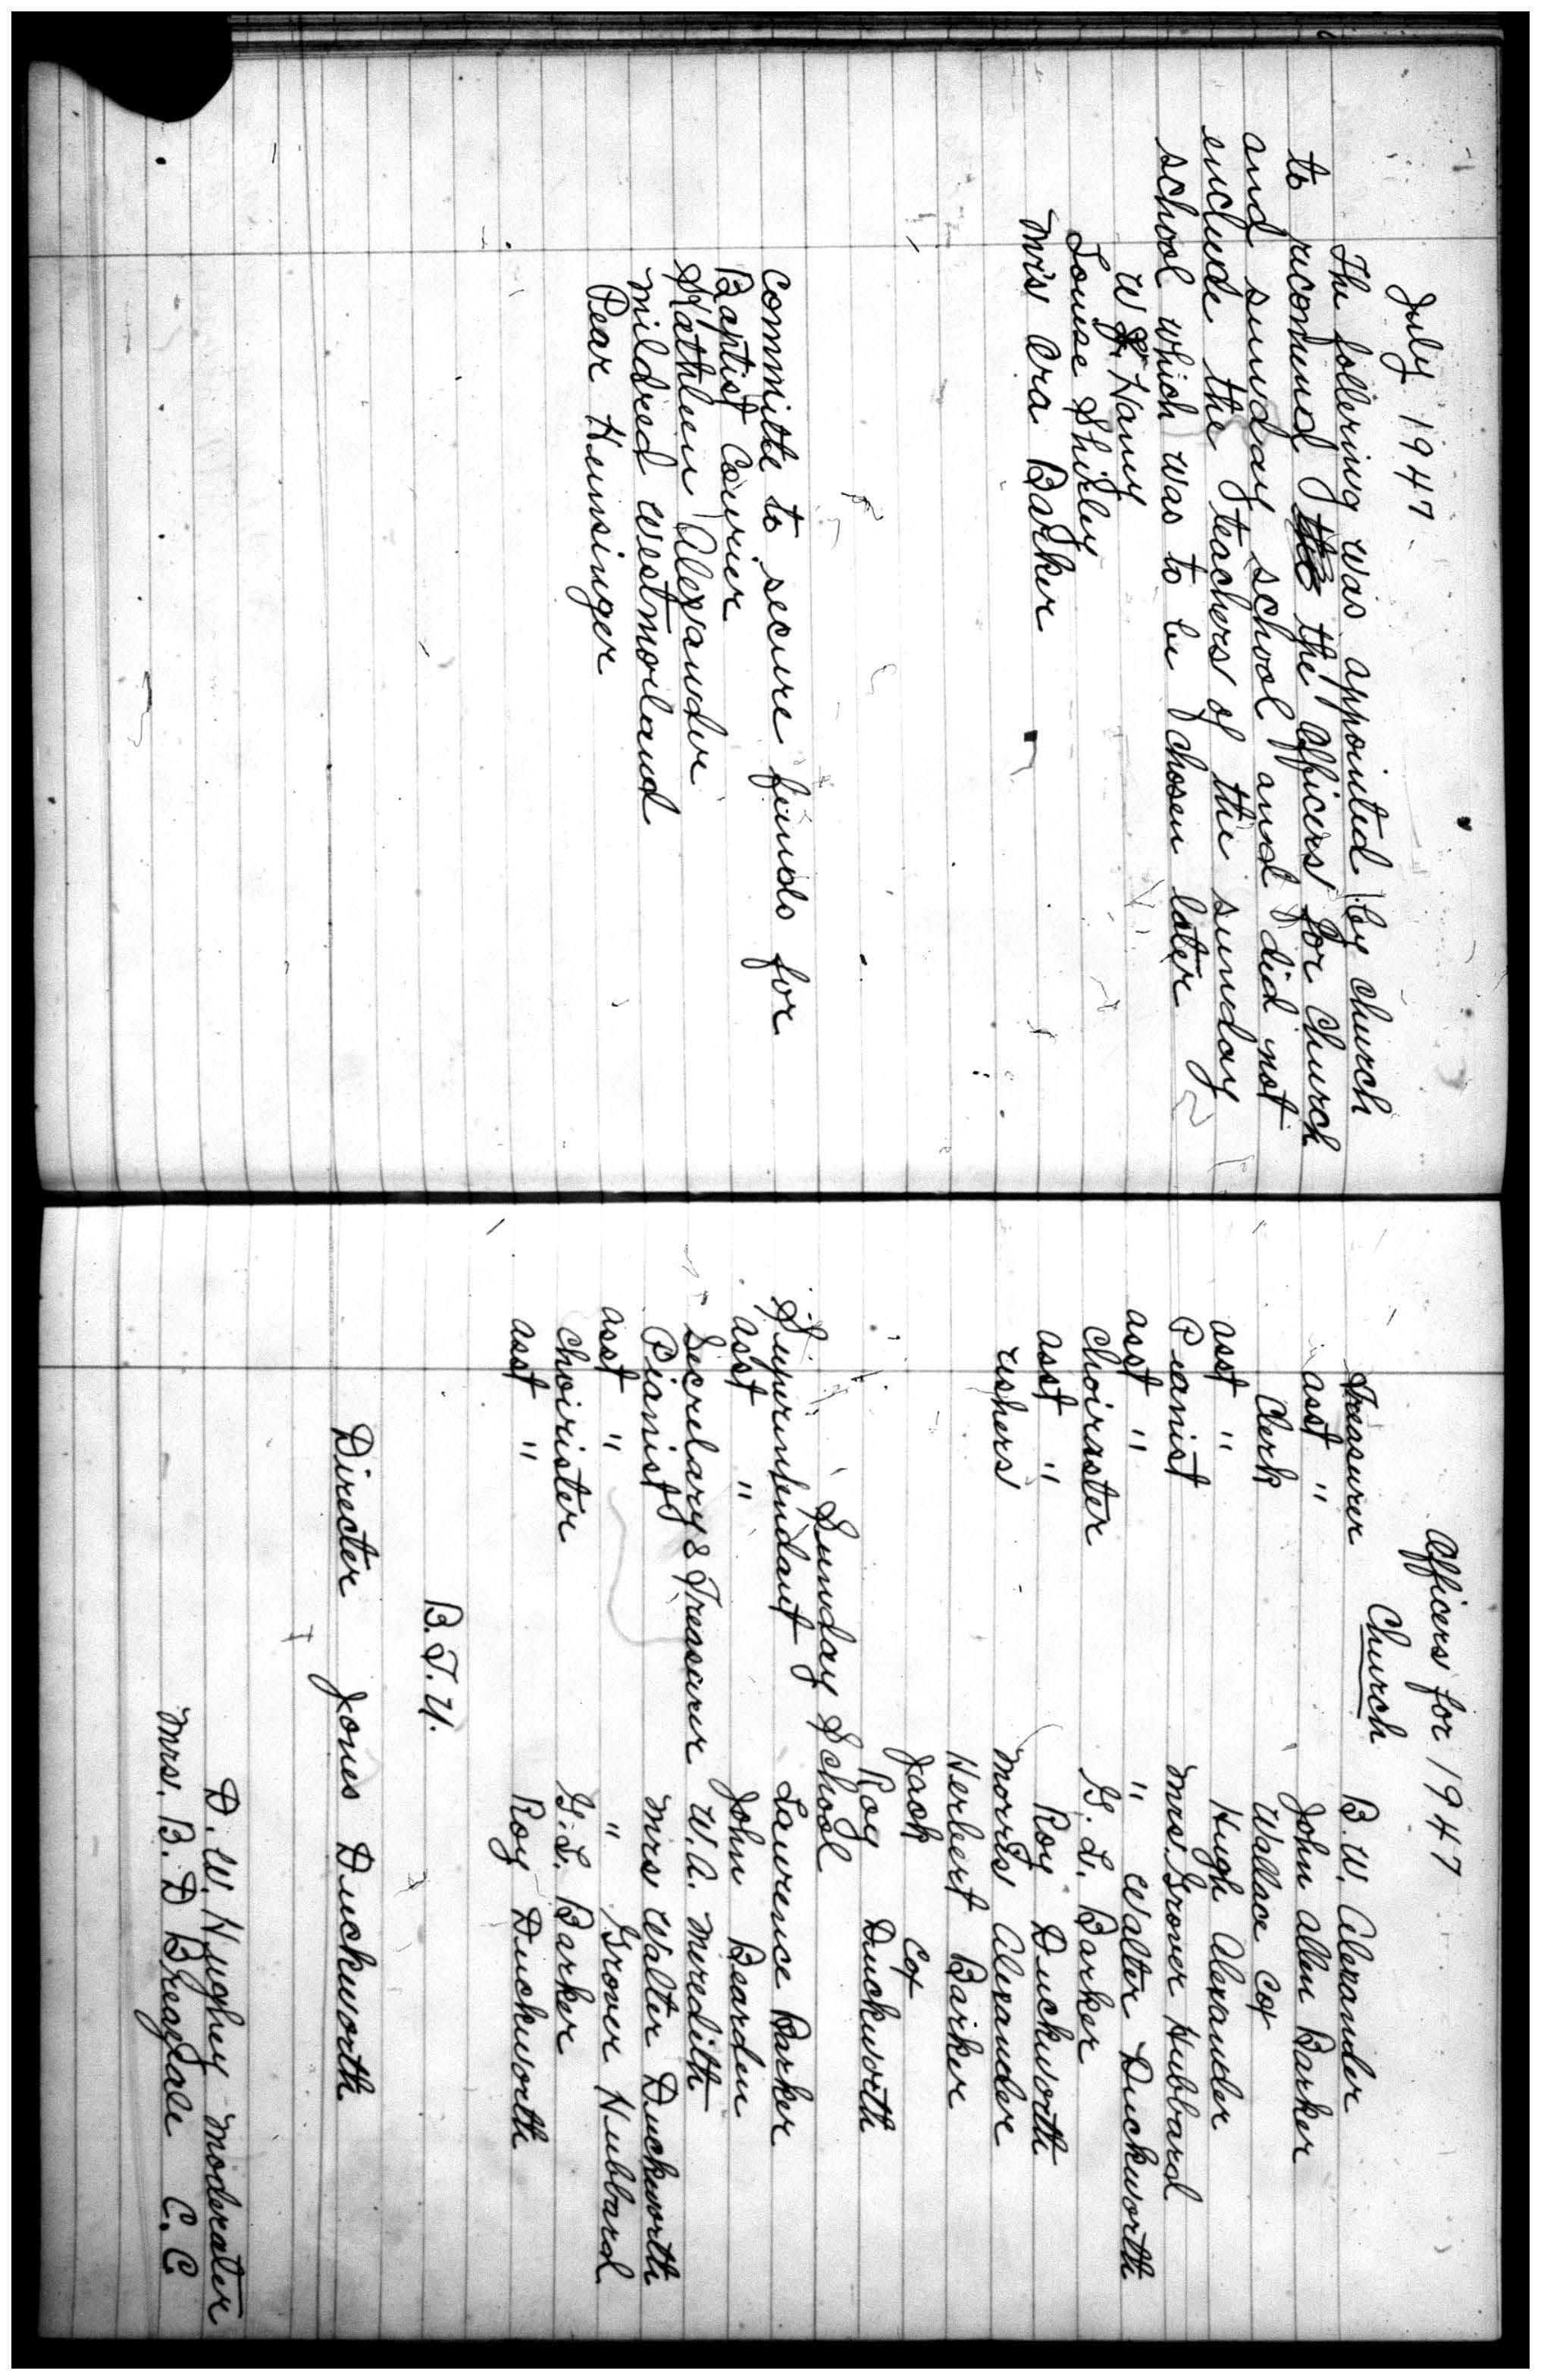 July 1947
The follering was appointed by church
to recomend the the officers for church
and sunday school and did not
enclude the teachers of the sunday
school which was to be chosen later
W. Haney
Louise Shirley
Mrs Ora Barker
Committe to secure funds for
Baptist Courier
Kathleen Alexander
Mildred Westmoiland
Pear Hunsinger
Officers for 1947
Church
Treasurer B. W. Alexander
asst " John Allen Barker
Clerk Wallace Cox
asst " Hugh Alexander
Pianist Mrs. Grover Hubbard
asst " " Walter Duckworth
Choiraster G. L. Barker
asst " Roy Duckworth
ushers Morris Alexander
Herbert Barker
Jack Cox
Roy Duckworth
Sunday School
Superintendant Lawrence Barker
asst " John Bearden
Secretary & Treasurer W. A. Meredith
Pianist Mrs Walter Duckworth
asst " " Grover Hubbard
Choirister G. L. Barker
asst " Roy Duckworth
B. T. U.
Directer Jones Duckworth
D. W. Hughey Moderater
Mrs. B. D Breazeale C. C.